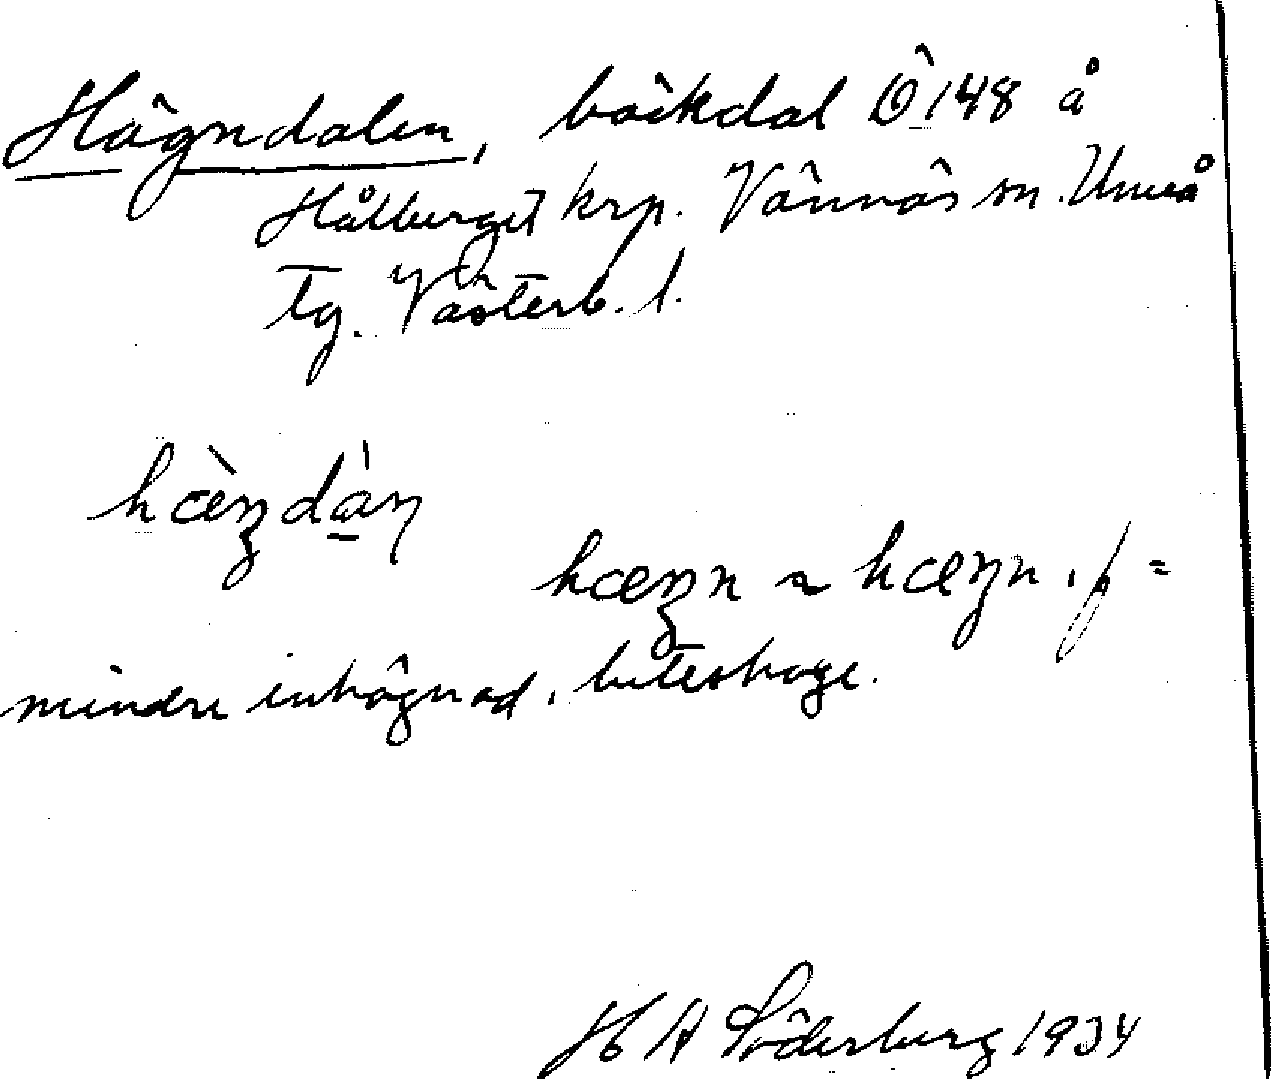 Hägndalen, bäckdal Ö 148 å
Hålberget krp. Vännäs sn. Umeå
tg. Västerb. l.
hæ̀ŋdàn
hæŋn ~ hæŋn, f =
mindre inhägnad, beteshage.
H A Söderberg 1934